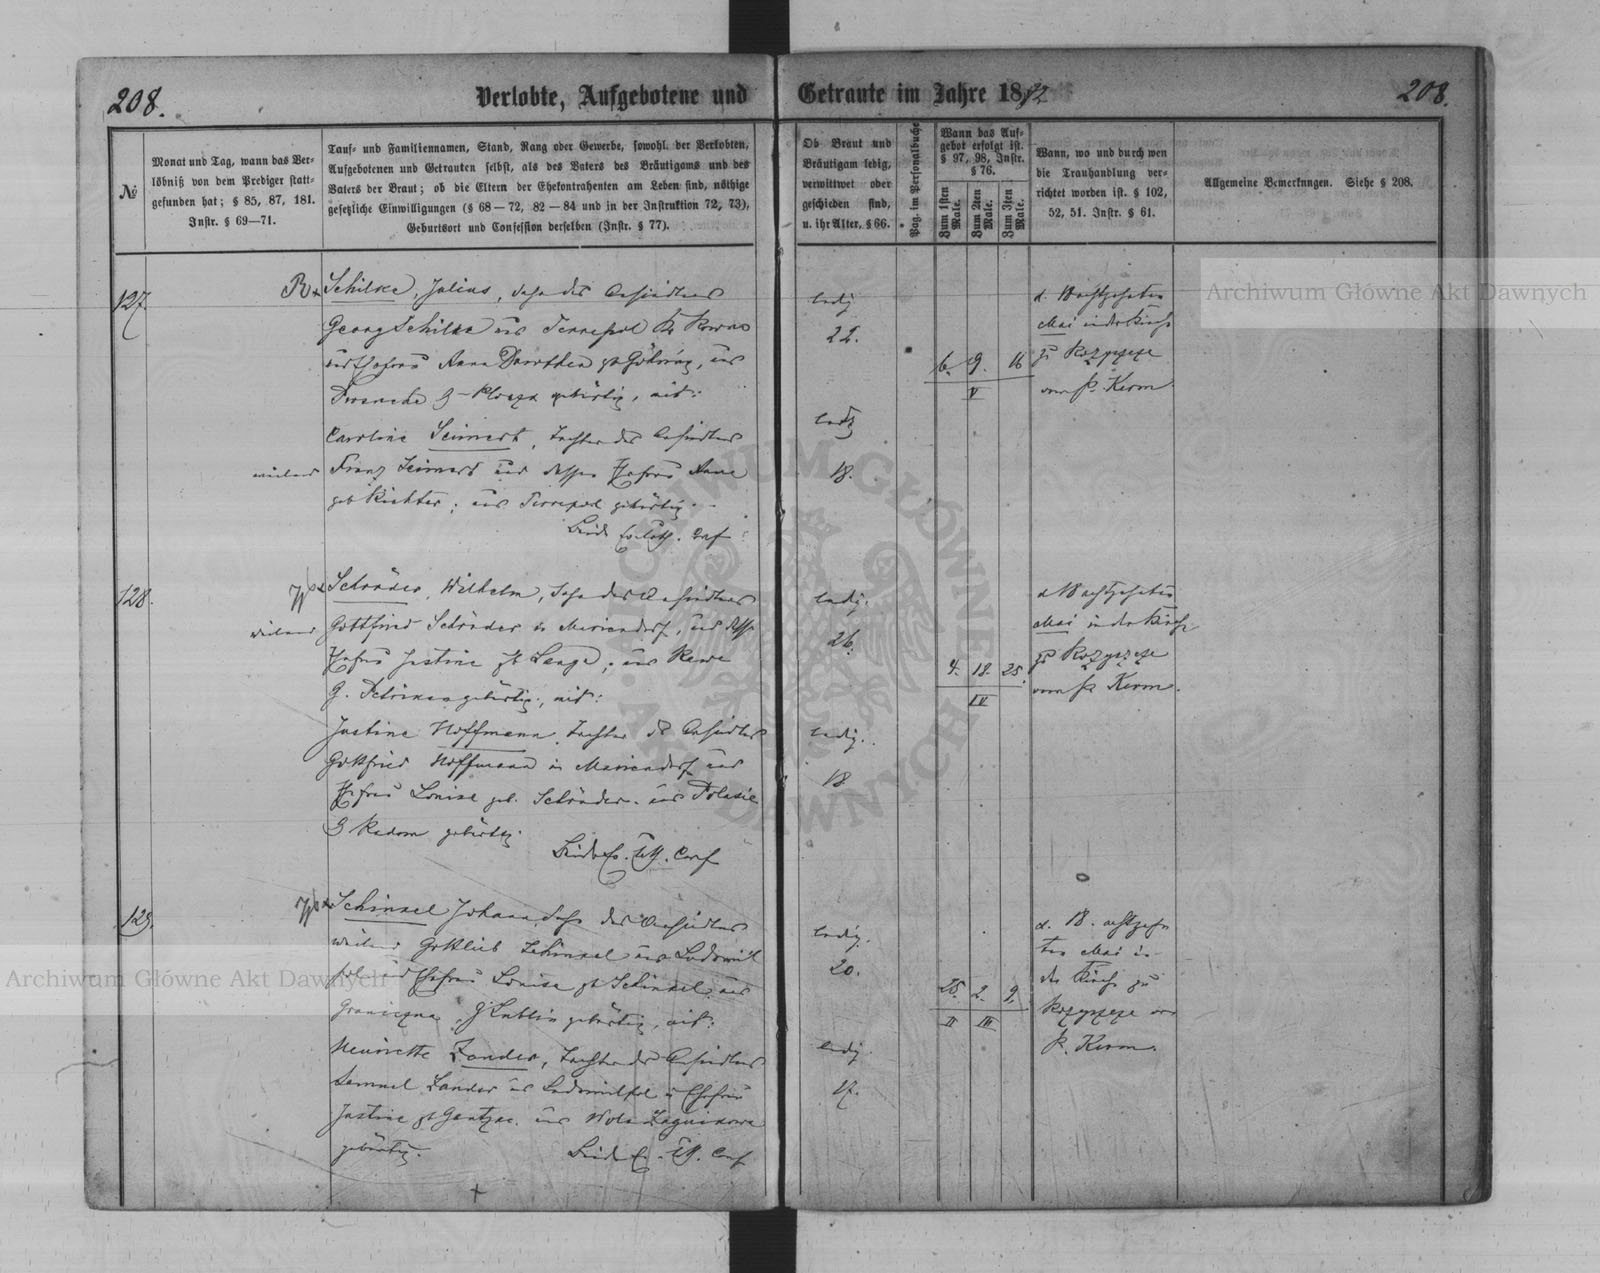 208.
Verlobte, Aufgebotene und Getraute im Jahre 1872
208.
№
Monat und Tag, wann das Ver-
löbniß von dem Prediger statt-
gefunden hat; § 85, 87, 181.
Instr. § 69—71.
Tauf- und Familiennamen, Stand, Rang oder Gewerbe, sowohl der Verlobten,
Aufgebotenen und Getrauten selbst, als des Vaters des Bräutigams und des
Vaters der Braut; ob die Eltern der Ehekontrahenten am Leben sind, nöthige
gesetzliche Einwilligungen (§ 68—72, 82—84 und in der Instruktion 72, 73),
Geburtsort und Confession derselben (Instr. § 77).
Ob Braut und
Bräutigam ledig,
verwittwet oder
geschieden sind,
u. ihr Alter, § 66.
Pag. im Personalbuche
Wann das Auf-
gebot erfolgt ist.
§ 97, 98, Instr.
§ 76.
Zum 1sten Male.
Zum 2ten Male.
Zum 3ten Male.
Wann, wo und durch wen
die Trauhandlung ver-
richtet worden ist. § 102,
52, 51. Instr. § 61.
Allgemeine Bemerkungen. Siehe § 208.
127.
Schilke, Julius, Sohn des Ansiedlers
Georg Schilke aus
Ehefrau Anna Dorothea gb Göhring, aus
gebürtig, mit:
Caroline Leimert, Tochter des Ansiedlers
weiland Franz Leimert und dessen Ehefrau Anna
geb Richter, aus gebürtig.
Beide Ev. Luth. Conf.
ledig
22.
ledig
18.
6. 9. 16
V
d. 18 achtzehnten
Mai in der Kirche
zu Rozyszcze
von P. Kerm
128.
Schröder, Wilhelm, Sohn des Ansiedlers
weiland Gottfried Schröder in Mariendorf, und dessen
Ehefrau Justine gb Lange, aus
G. gebürtig, mit:
Justine Hoffmann, Tochter des Ansiedlers
Gottfried Hoffmann in Mariendorf und
Ehefrau Louise geb. Schröder. aus
G Radom gebürtig.
Beide Ev. Luth. Conf
ledig.
26.
ledig.
18
4. 18. 25.
IV
d 18 achtzehnten
Mai in der Kirche
zu Rozyszcze
vom P. Kerm.
129.
Schinkel Johann, Sohn des Ansiedlers
weiland Gottlieb Schinkel aus Ludwmil
pol und Ehefrau Louise gb Schinkel, aus
Graniczna, G Lublin gebürtig, mit:
Henriette Zander, Tochter des Ansiedlers
Samuel Zander aus Ludwmilpol u Ehefrau
Justine gb aus Wola
gebürtig.
Beide Ev. Luth. Conf
ledig.
20.
ledig.
17.
25. 2. 9.
II III
d. 18. achtzehn
ten Mai in
der Kirche zu
Rozyszcze von
P. Kerm.
Archiwum Główne Akt Dawnych
Archiwum Główne Akt Dawnych
ARCHIWUM GŁÓWNE AKT DAWNYCH